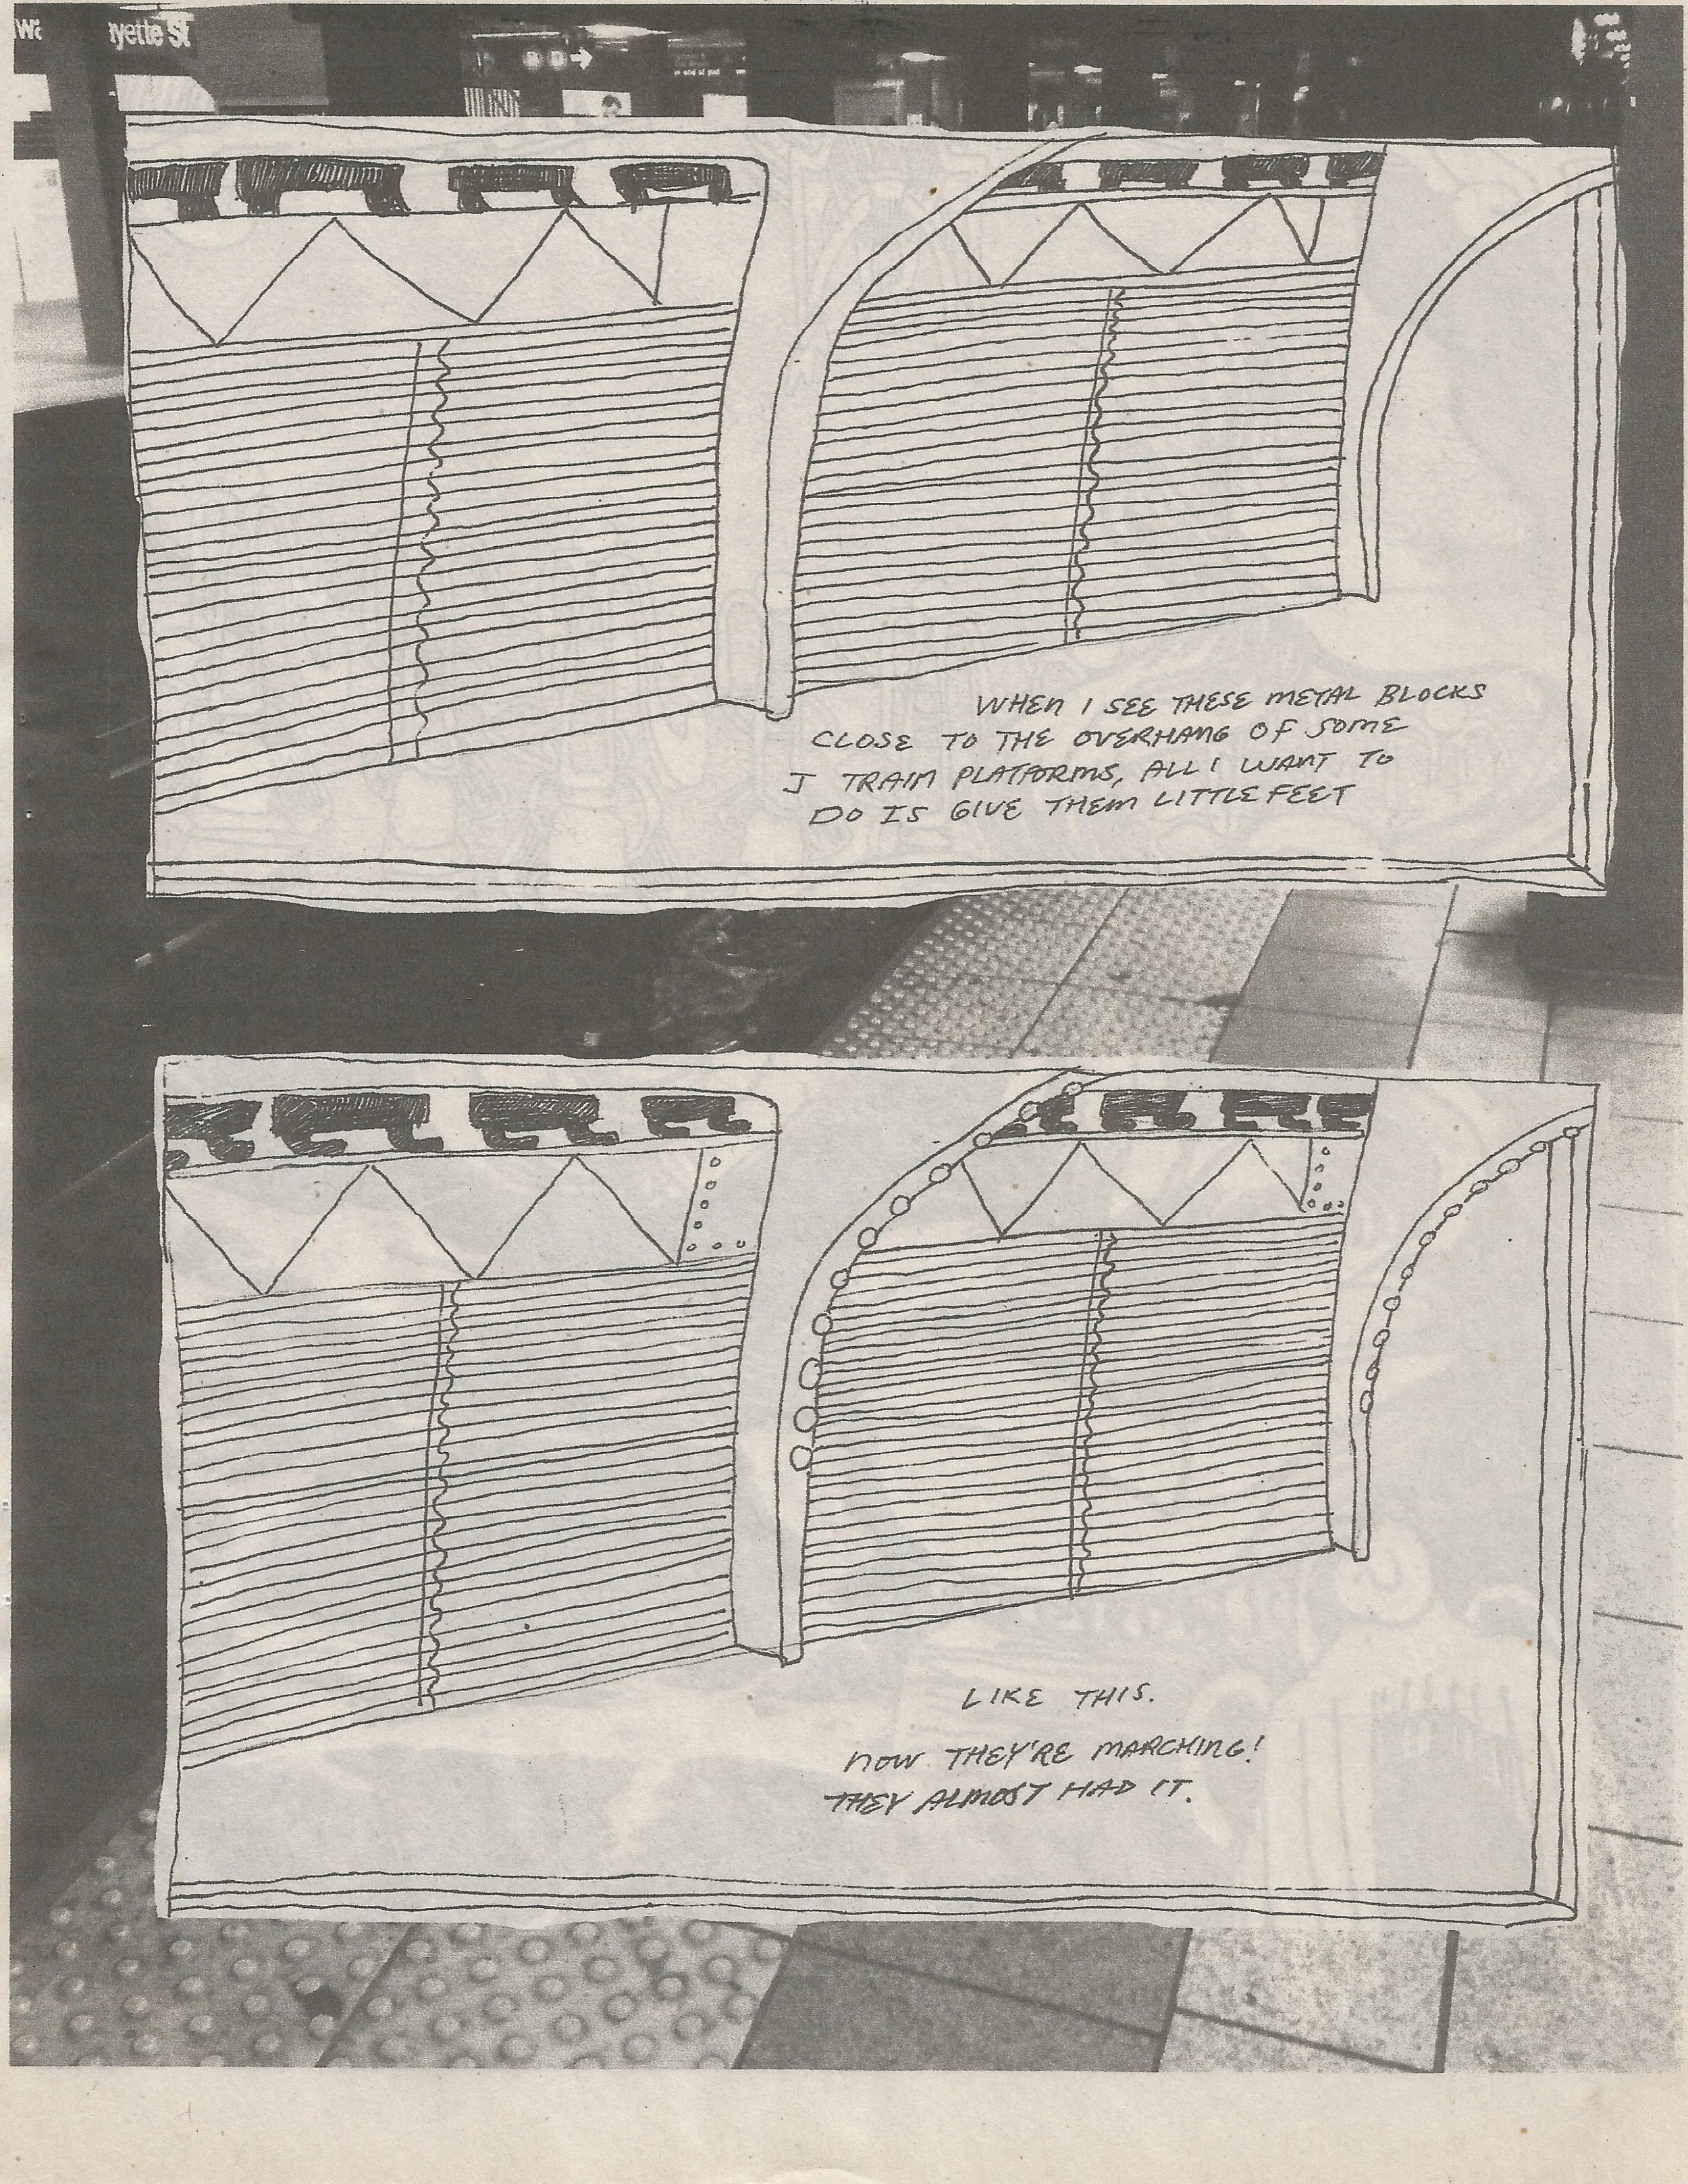 ayette St
B D →
WHEN I SEE THESE METAL BLOCKS
CLOSE TO THE OVERHANG OF SOME
J TRAIN PLATFORMS, ALL I WANT TO
DO IS GIVE THEM LITTLE FEET
LIKE THIS.
NOW THEY'RE MARCHING!
THEY ALMOST HAD IT.